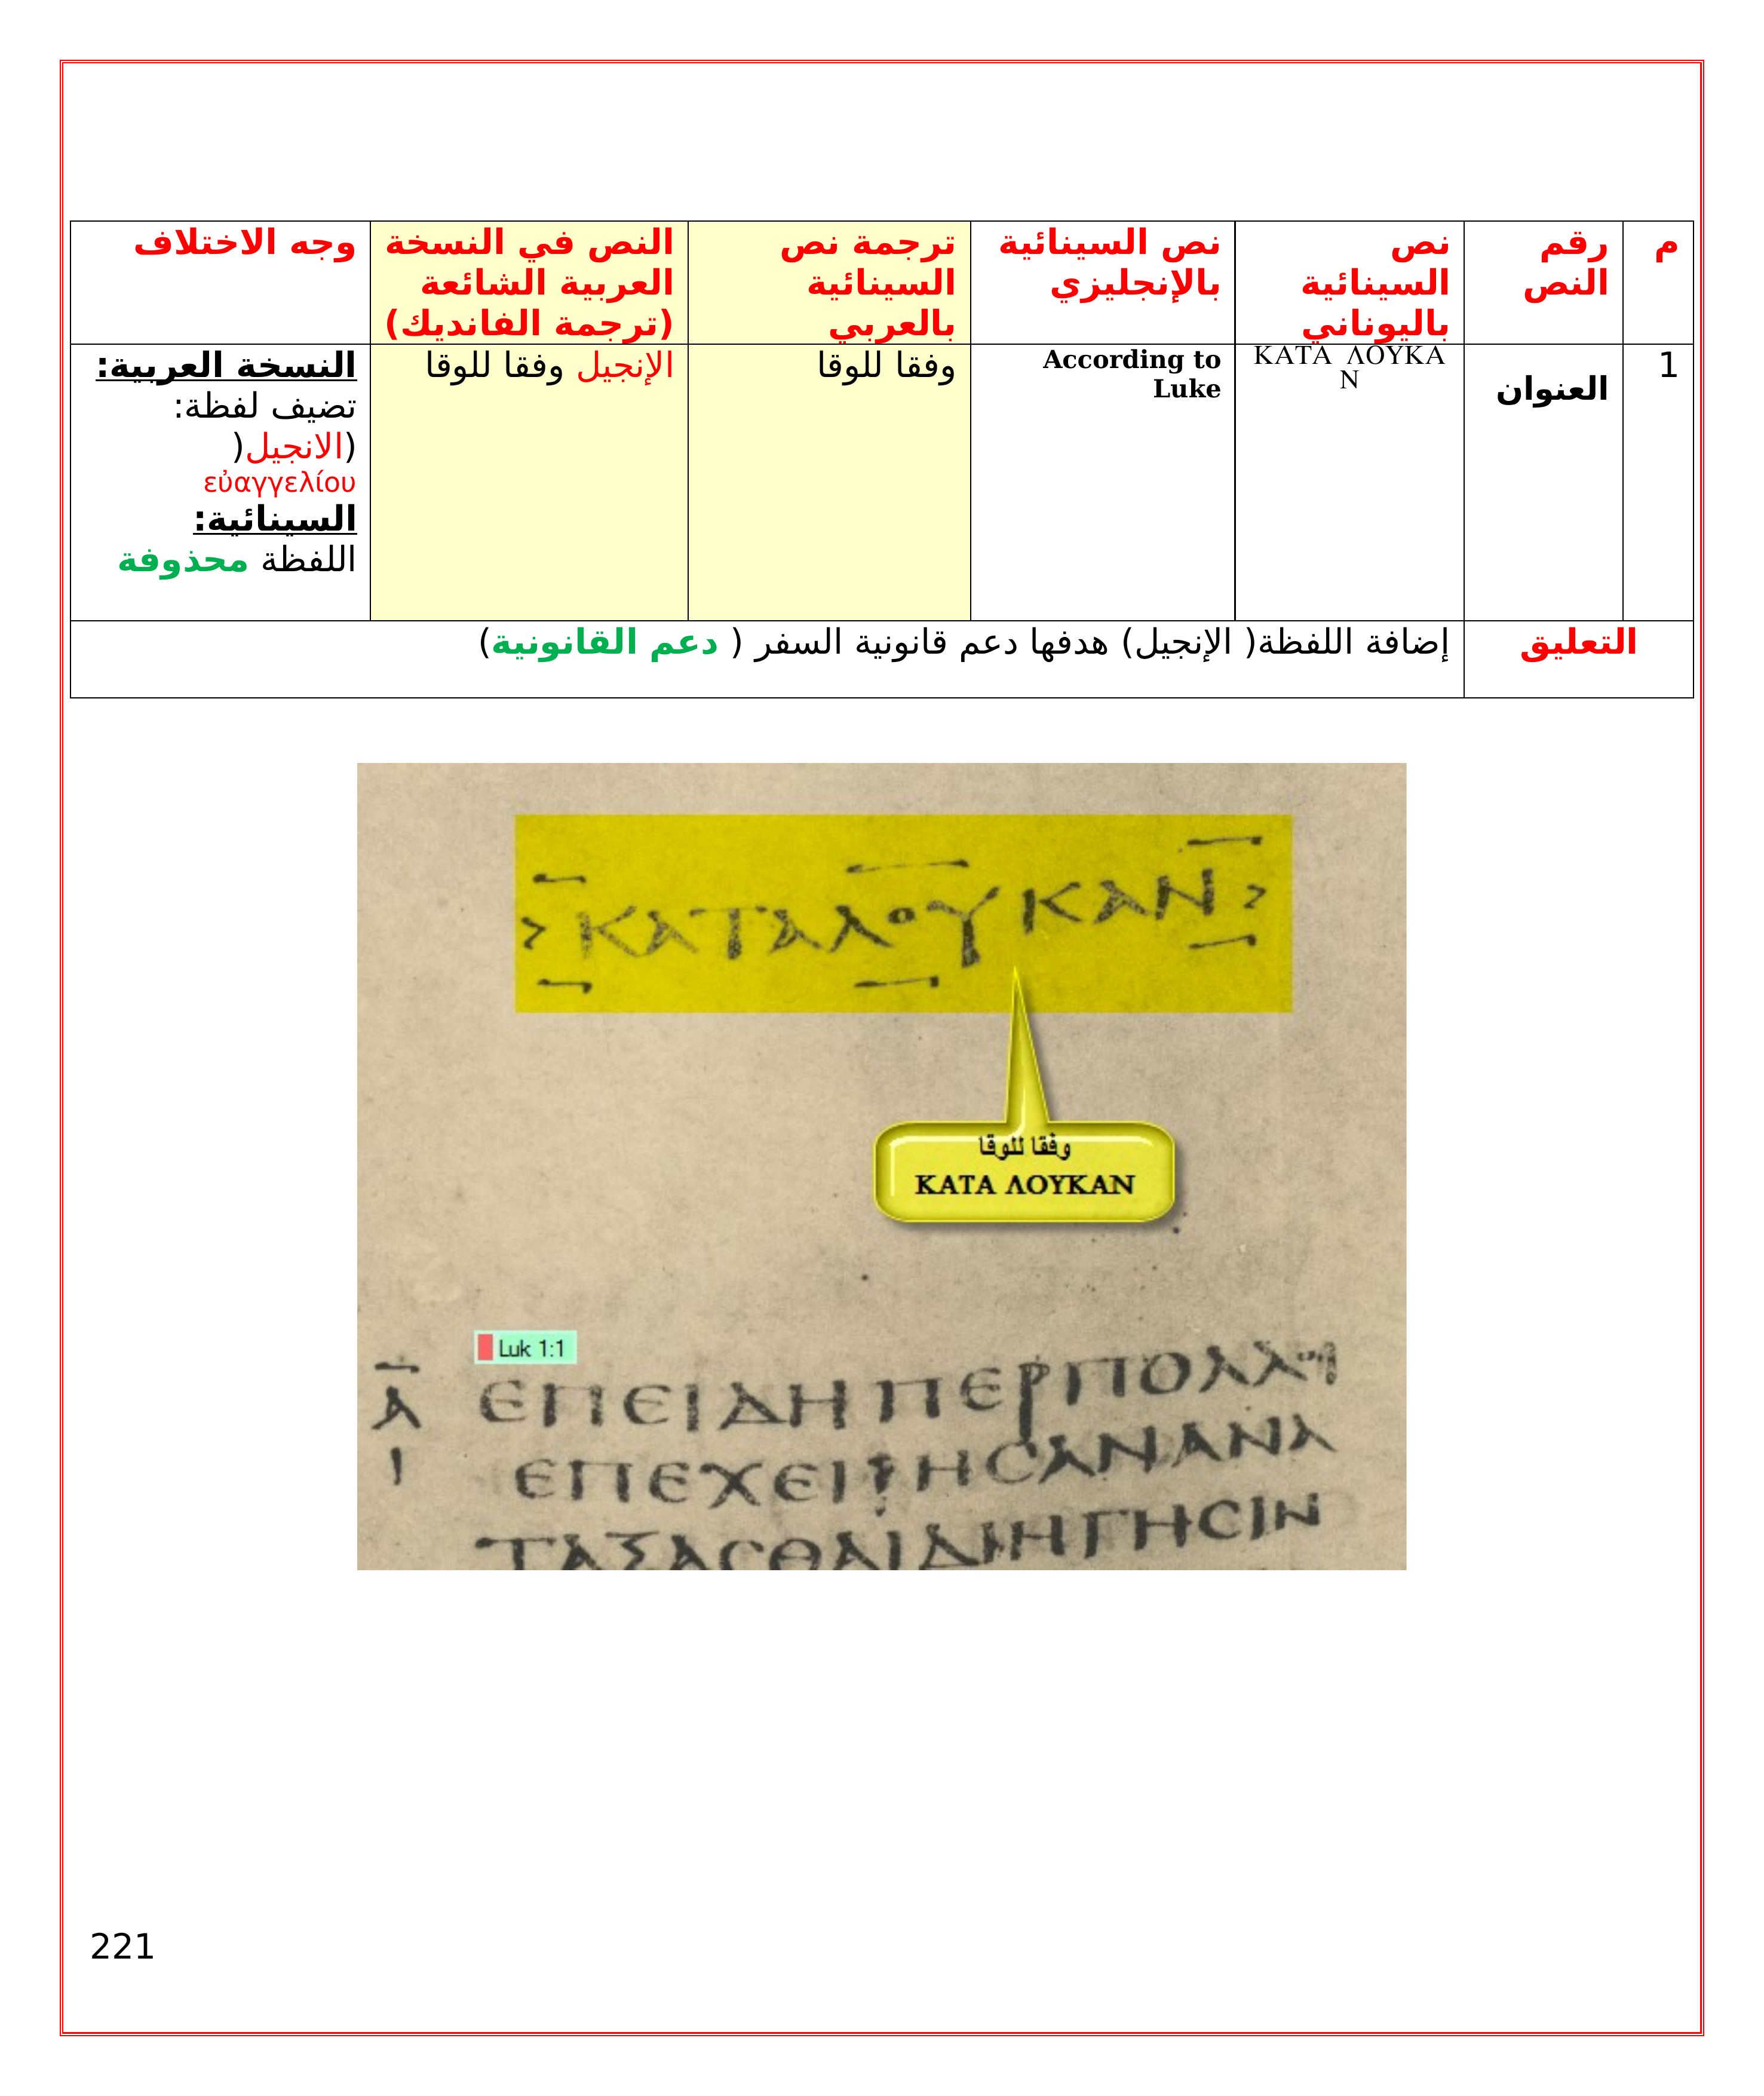 م
رقم
النص
نص
السينائية
باليوناني
نص السينائية
بالإنجليزي
ترجمة نص
السينائية
بالعربي
النص في النسخة
العربية الشائعة
(ترجمة الفانديك)
وجه الاختلاف
1
العنوان
ΚΑΤΑ ΛΟΥΚΑ
Ν
According to
Luke
وفقا للوقا
الإنجيل وفقا للوقا
النسخة العربية:
تضيف لفظة:
(الانجيل(
εὐαγγελίου
السينائية:
اللفظة محذوفة
التعليق
إضافة اللفظة( الإنجيل) هدفها دعم قانونية السفر ( دعم القانونية)
> ΚΑΤΑΛΟΥΚΑΝ >
وفقا للوقا
ΚΑΤΑ ΛΟΥΚΑΝ
Luk 1:1
Α
Ι
ΕΠΕΙΔΗΠΕΡΠΟΛΛΟΙ
ΕΠΕΧΕΙΡΗϹΑΝΑΝΑ
ΤΑΞΑϹΘΑΙΔΙΗΓΗϹΙΝ
221